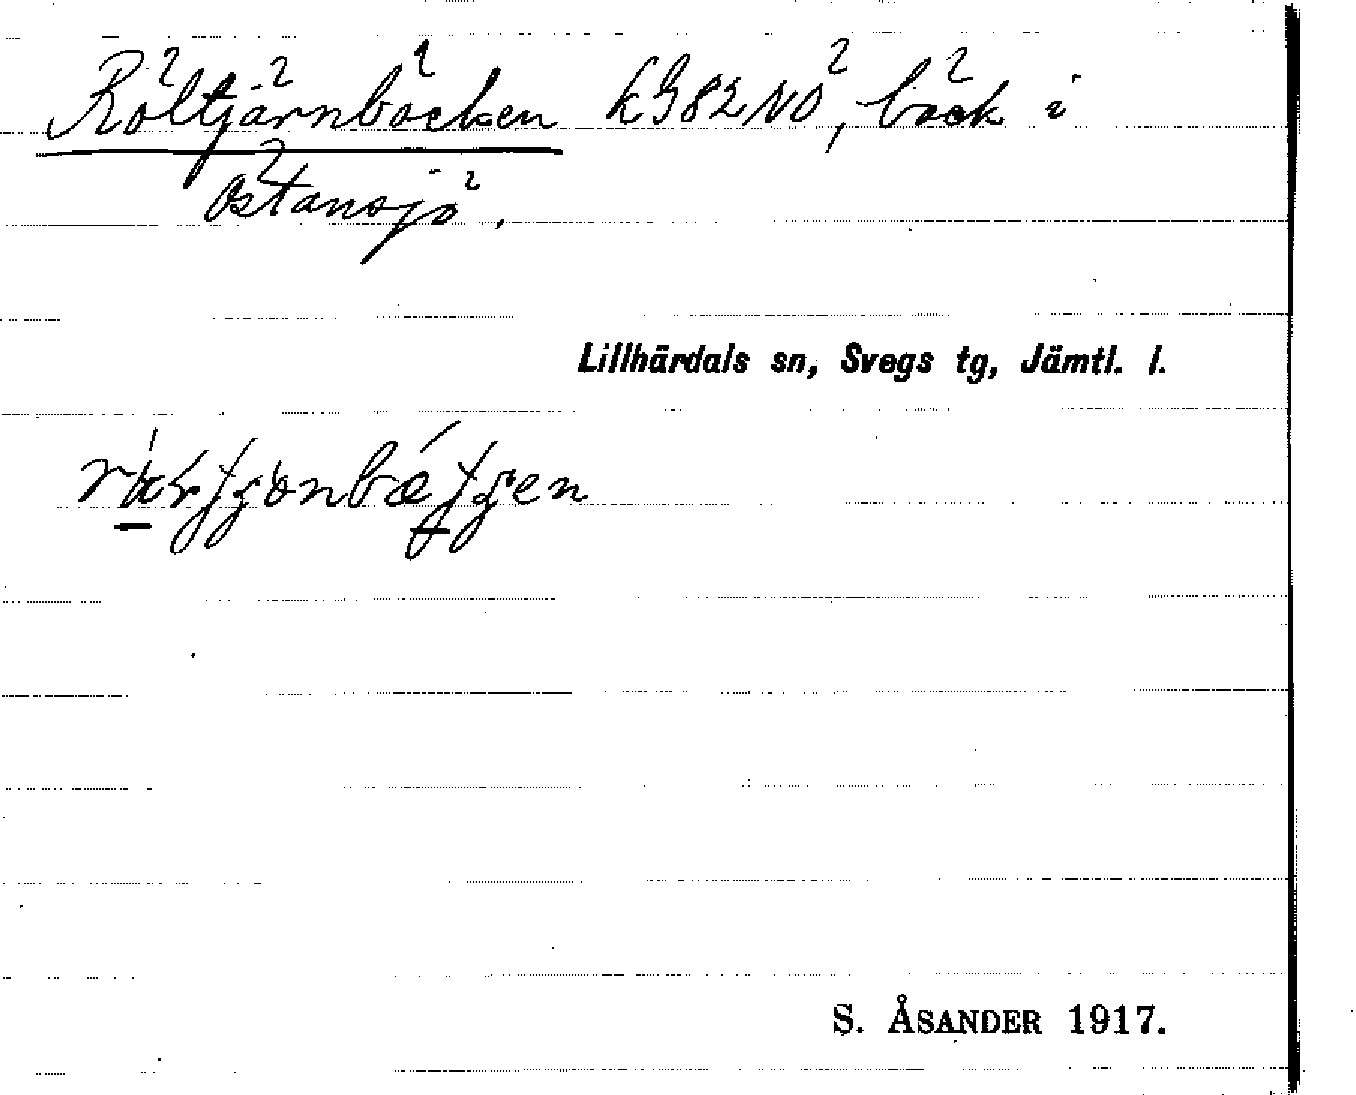 Röltjärnbäcken kg82NÖ, bäck i
Östansjö.
Lillhärdals sn, Svegs tg, Jämtl. l.
S. ÅSANDER 1917.